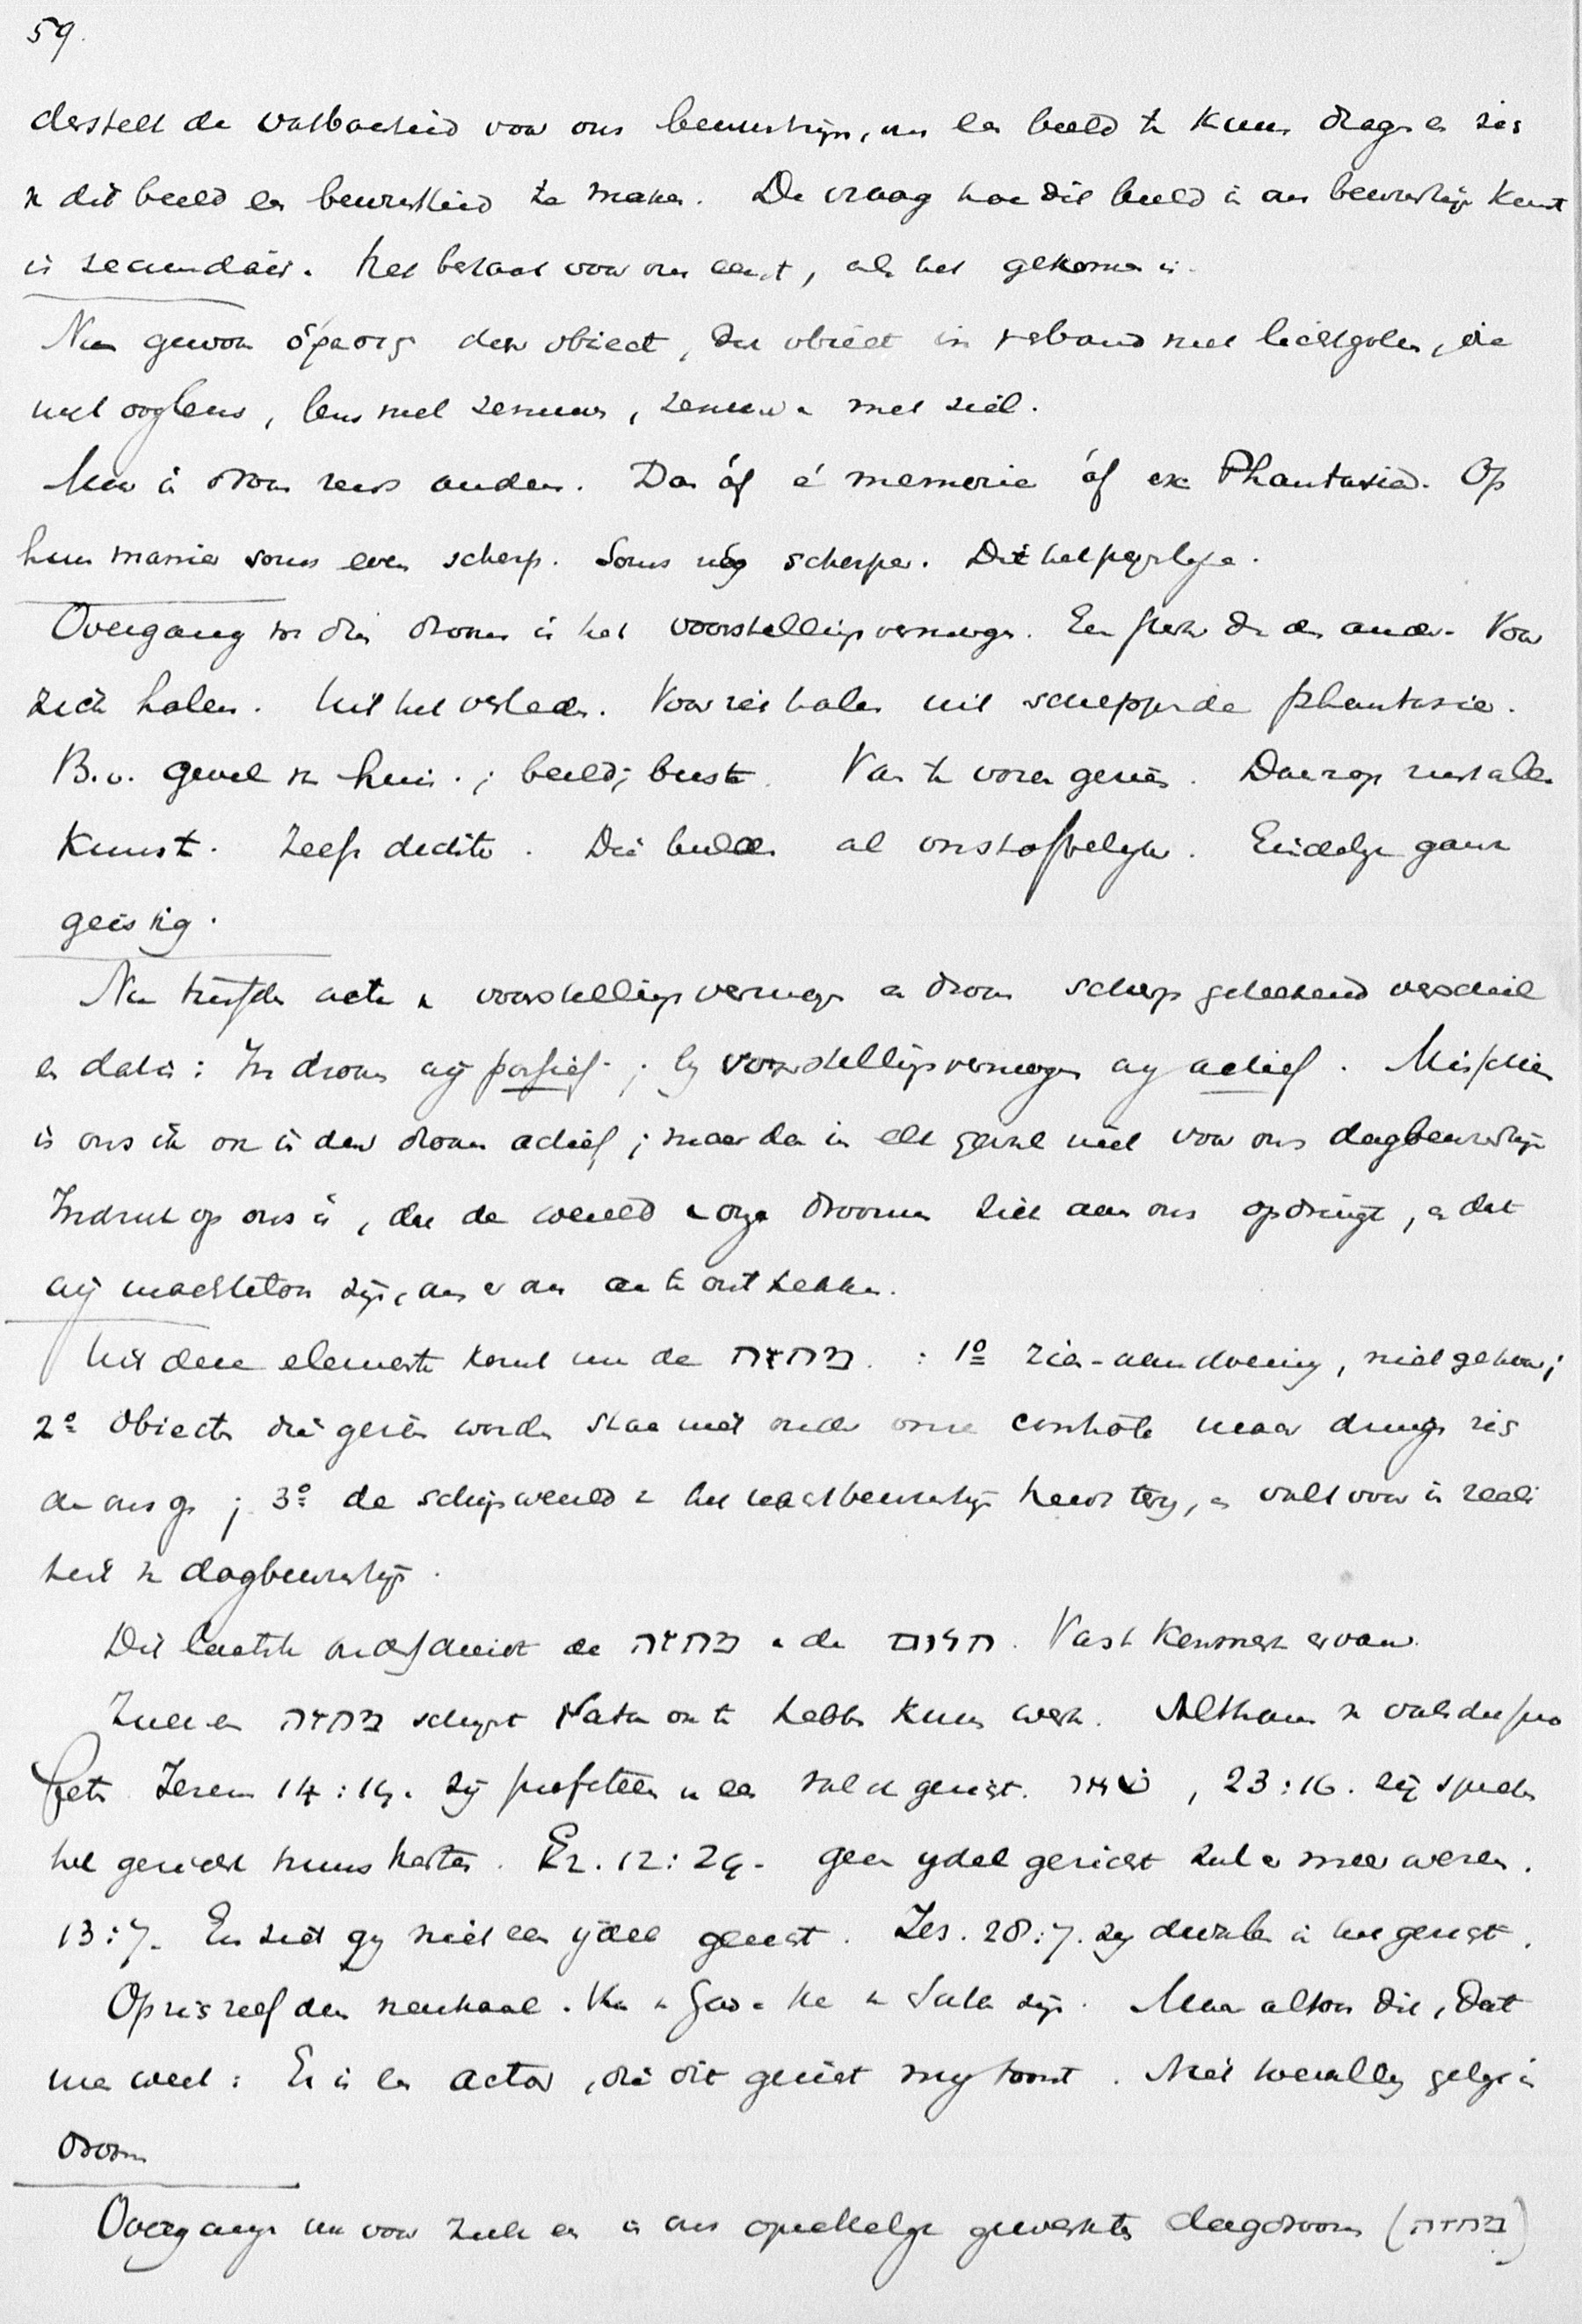 59.
derstelt de vatbaarheid voor ons bewustzijn, om een beeld te kunnen dragen en zich
v dit beeld een bewustheid te maken. De vraag hoe dit beeld in ons bewustzijn komt
is secundair. Het bestaat voor ons eerst, als het gekomen is.
Nu gewoon ὅρασις door object, dat object in verband met lichtgolven, die
met ooglens, lens met zenuw, zenuwen met ziel.
Maar in droom reeds anders. Dan óf e memorie óf ex Phantasia. Op
hun manier soms even scherp. Soms nog scherper. Dit
Overgang tot die droom is het voorstellingsvermogen. Een sterker dan de ander. Voor
zich halen. Uit het verleden. Voor zich halen uit scheppende phantasie.
B.v. gevel v huis; beeld; buste. Van te voren gezien. Daarop rust alle
Kunst. Zelfs dichter. Die beelden al onstoffelijker. Eindelijk gansch
geestig.
Nu tusschen acte v voorstellingsvermogen en droom scherp geteekend verschil
en dat is: In droom wij passief; bij voorstellingsvermogen wij actief. Misschien
is ons ik ook in den droom actief; maar dan in elk geval niet voor ons dagbewustzijn
Indruk op ons is, dat de wereld v onze droomen zich aan ons opdringt, en dat
wij machteloos zijn, om er ons aan te onttrekken.
Uit deze elementen komt nu de מחזה : 1º zien-aandoening, niet gehoor;
2º Objecten die gezien worden staan niet onder onze contrôle maar dringen zich
aan ons op; 3º de schijnwereld v het nachtbewustzijn terug, en valt voor in reali
teit v dagbewustzijn.
Dit laatste onderscheidt de מחזה v de חלום. Vast kenmerk ervan.
Zulk een מחזה schijnt Satan ook te hebben kunnen werken. Althans v valsche pro
feten Jerem 14:14. Zij profeteeren u een valsch gezicht. שוא, 23:16. zij spreken
het gezicht huns harten. Ez. 12:24. geen ydel gezicht zal er meer wezen.
13:7. En ziet gij niet een ijdel gezicht. Jes. 28:7. zy dwalen in het gezicht.
Op zich zelf dus neutraal. Kan v God en kan v Satan zijn. Maar altoos dit, dat
men weet: Er is een actor, die dit gezicht mij toont. Niet toevallig gelijk in
droom
Overgang nu voor zulk een is ons opzettelijk gewerkten dagdroom (מחזה)